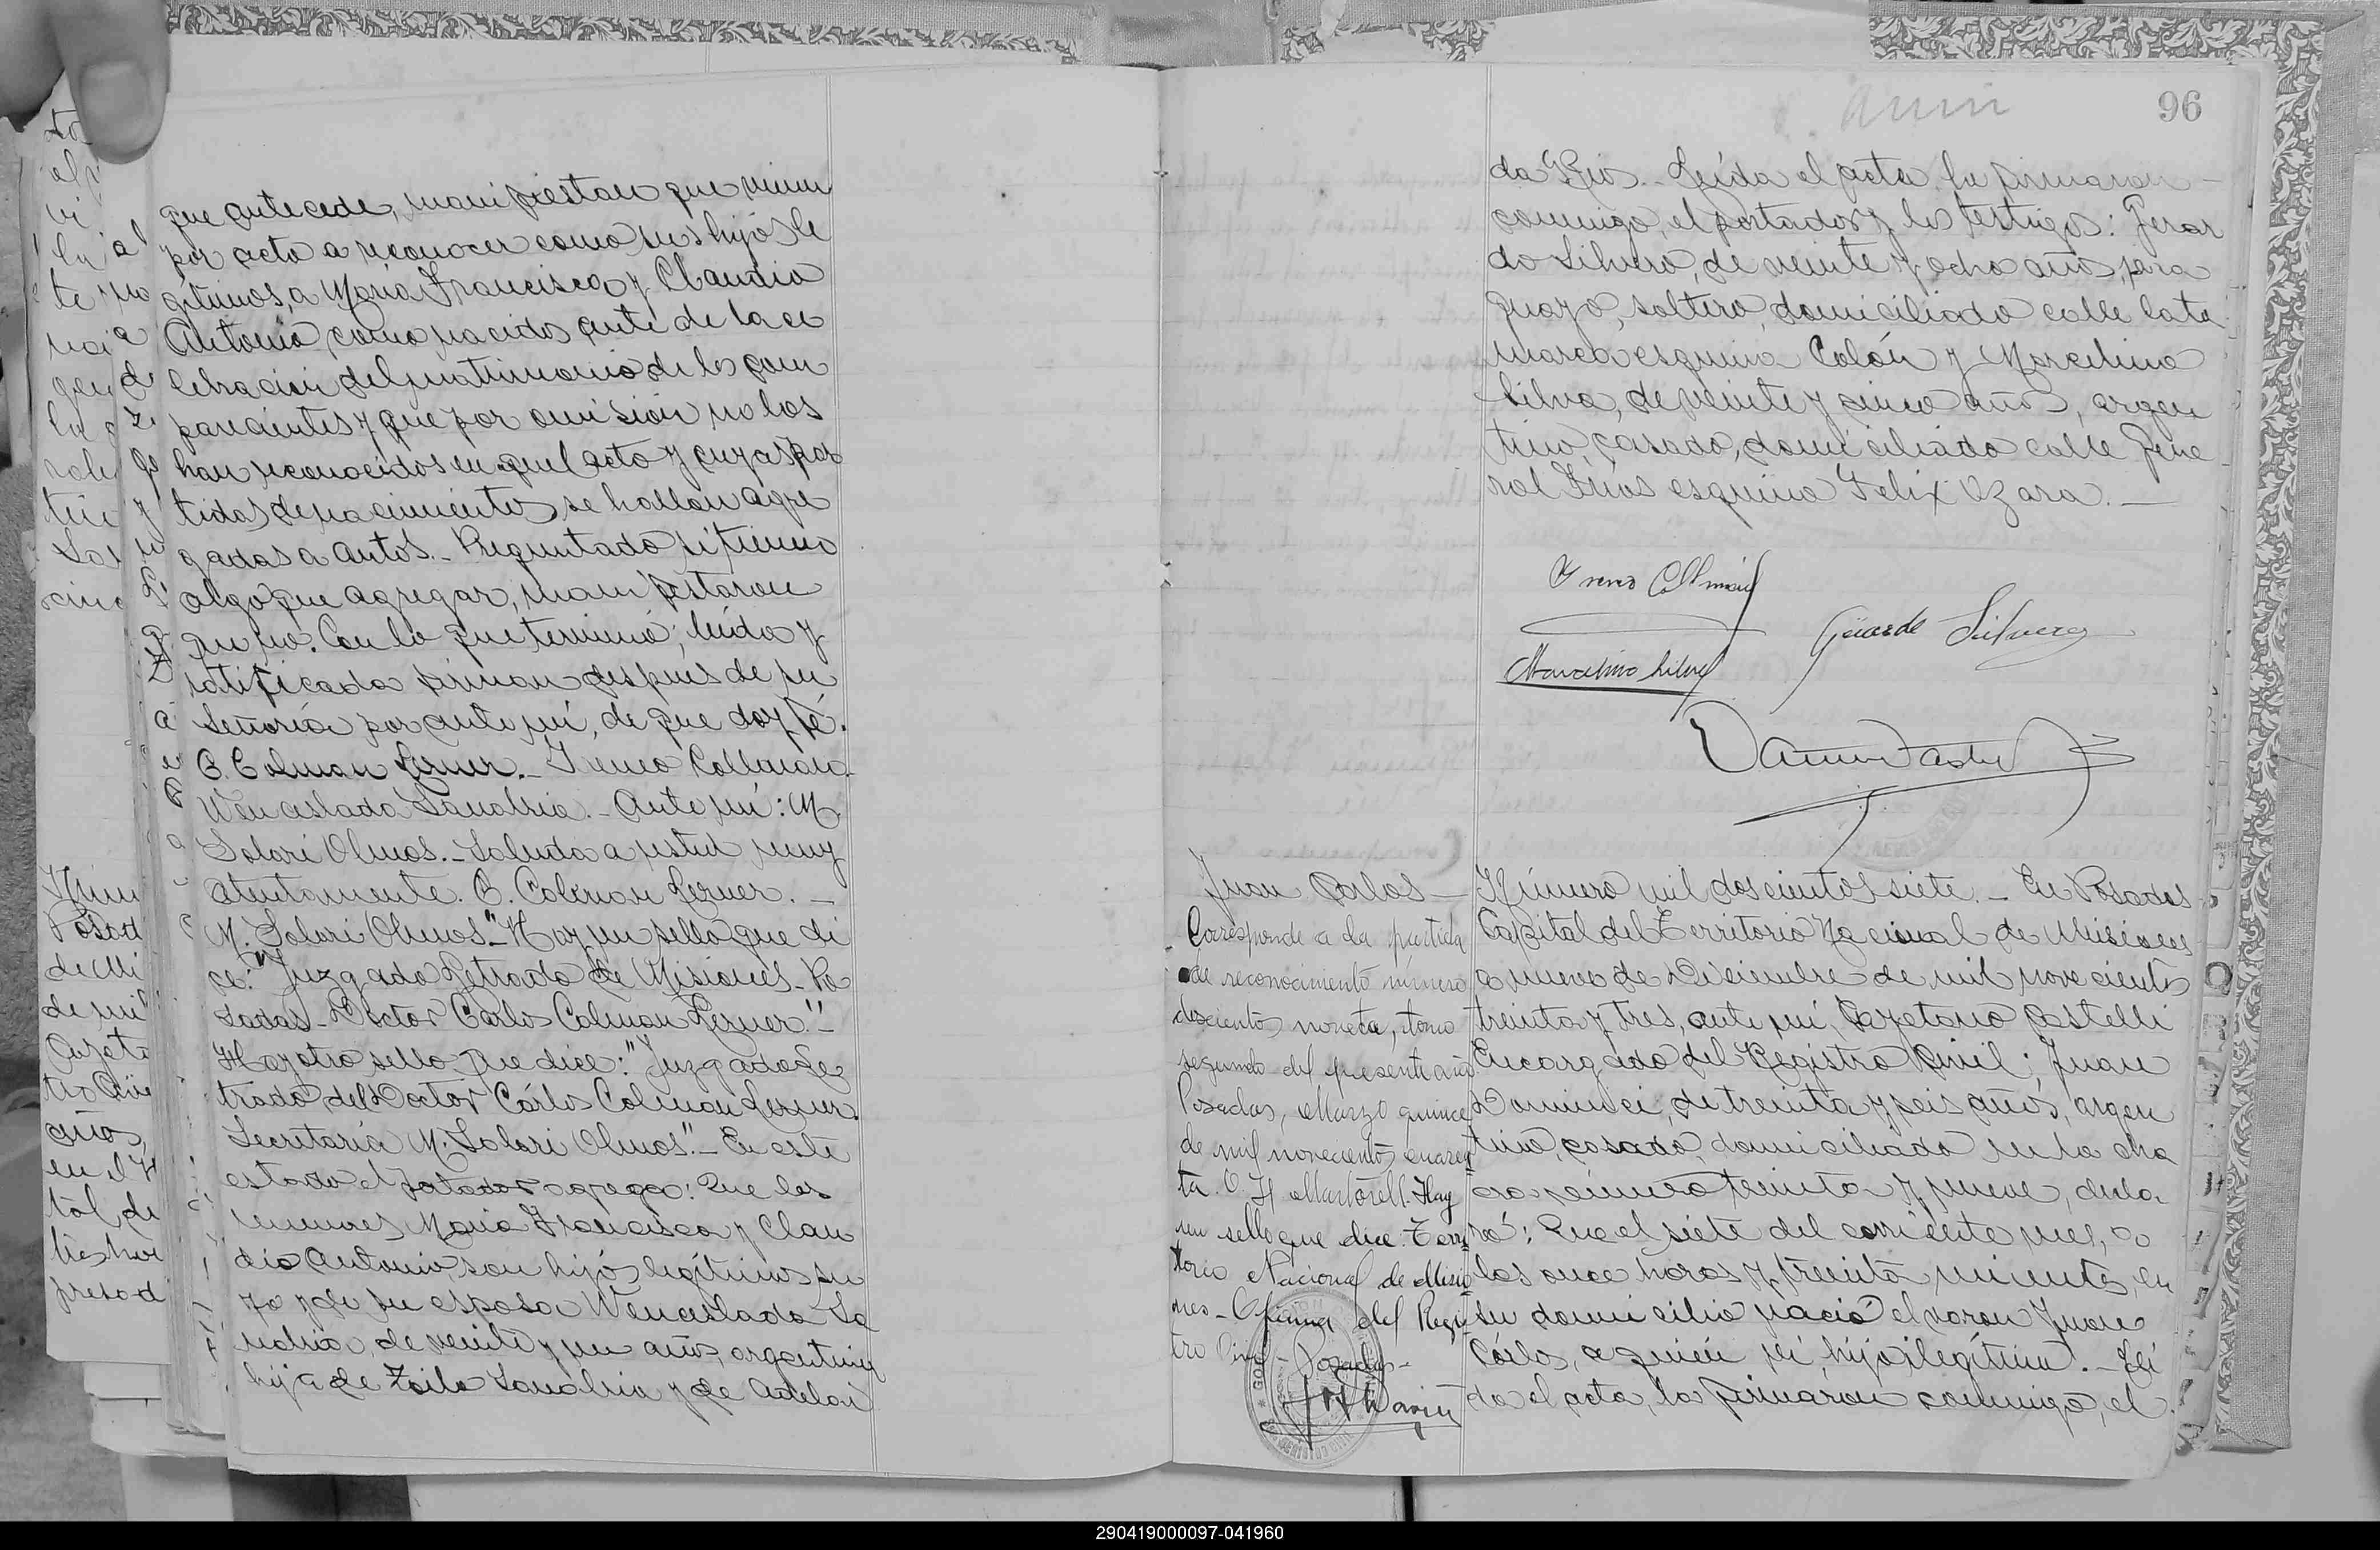 que antecede, manifiestan que vienen
por acto a reconocer como sus hijos le
gítimos, a María Francisca y Claudio
Antonio, como nacidos ante de la ce
lebración del matrimonio de los com
parecientes y que por omisión no los
han reconocidos en aquel acto y cuyas par
tidas de nacimientos se hallan agre
gadas a autos.- Preguntado si tienen
algo que agregar, manifestaron
que no. Con lo que terminó; leída y
ratificada firman despues de su
Señoría por ante mí, de que doy fé.
C. Colman Lerner.- Ireneo Collmán.
Wenceslada Sanabria.- Ante mí: M.
Solari Olmos.- Saluda a usted muy
atentamente. C. Colman Lerner.-
M. Solari Olmos."- Hay un sello que di
ce: "Juzgado Letrado de Misiones- Po
sadas- Doctor Carlos Colman Lerner."-
Hay otro sello que dice: "Juzgado Le
trado, del Doctor Cárlos Colman Lerner.
Secretaría M. Solari Olmos".- En este
estado el portador agrega: Que los
menores María Francisca y Clau
dio Antonio, son hijos legítimos su
yo y de su esposa Wenceslada Sa
nabria, de veinte y un años, argentina
hija de Zoilo Sanabria y de Adelai
96
da Rios.- Leída el acta, la firmaron
conmigo, el portador y los testigos: Gerar
do Silvera, de veinte y ocho años, para
guayo, soltero, domiciliado calle Cata
marca esquina Colón y Marcelino
Silva, de veinte y cinco años, argen
tino, casado, domiciliado calle Gene
ral Frias esquina Felix Azara.-
Ireneo Collmán
Gerardo Silvera
Marcelino Silva
Juan Carlos-
Corresponde a la partida
de reconocimiento número
doscientos noventa, tomo
segundo del presente año
Posadas, Marzo quince
de mil novecientos cuaren
ta. O. H. Martorell. Hay
un sello que dice: Terri
torio Nacional de Misio
nes- Oficina del Regis
tro Civil- Posadas-
Número mil doscientos siete.- En Posadas
Capital del Territorio Nacional de Misiones
a nueve de Diciembre de mil novecientos
treinta y tres, ante mí, Cayetano Castelli
Encargado del Registro Civil; Juan
Dominici, de treinta y seis años, argen
tino, casado, domiciliado en la cha
cra número treinta y nueve, decla
ró: Que el siete del corriente mes, a
las once horas y treinta minutos, en
su domicilio nació el varon Juan
Cárlos, a quién su hijo ilegítimo.- Leí
da el acta, la firmáron conmigo, el
290419000097-041960